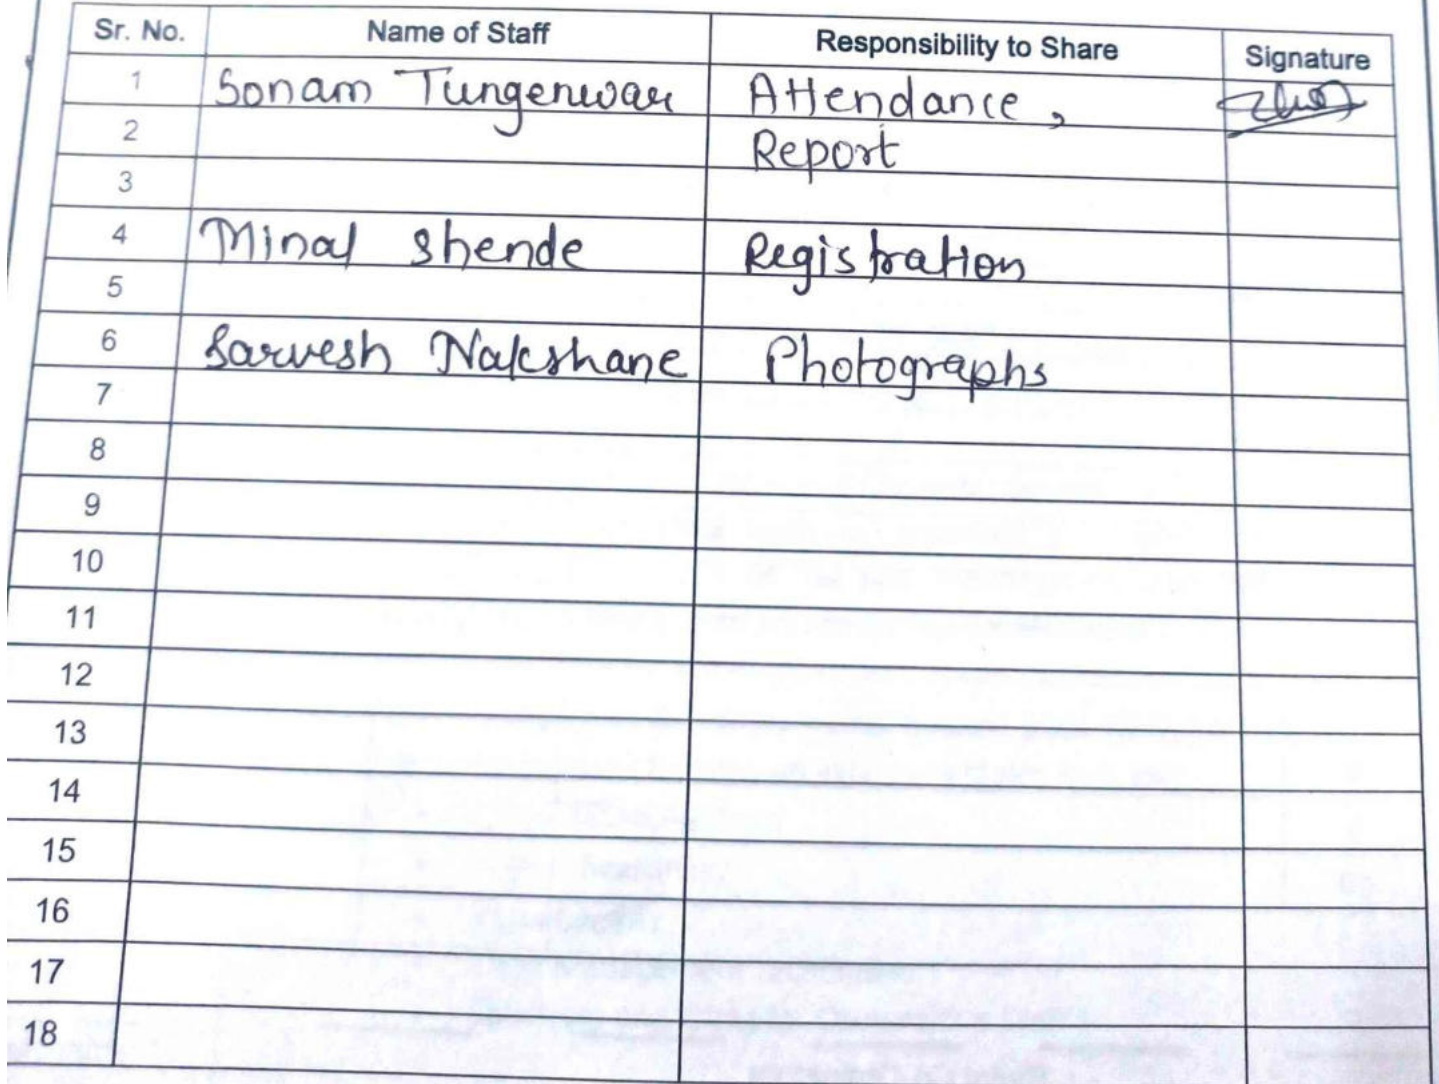 Sr. No. Name of Staff Responsibility to Share Signature
1 Sonam Tungenwar Attendance,
2 Report
3
4 Minal Shende Registration
5
6 Sarvesh Nakshane Photographs
7
8
9
10
11
12
13
14
15
16
17
18